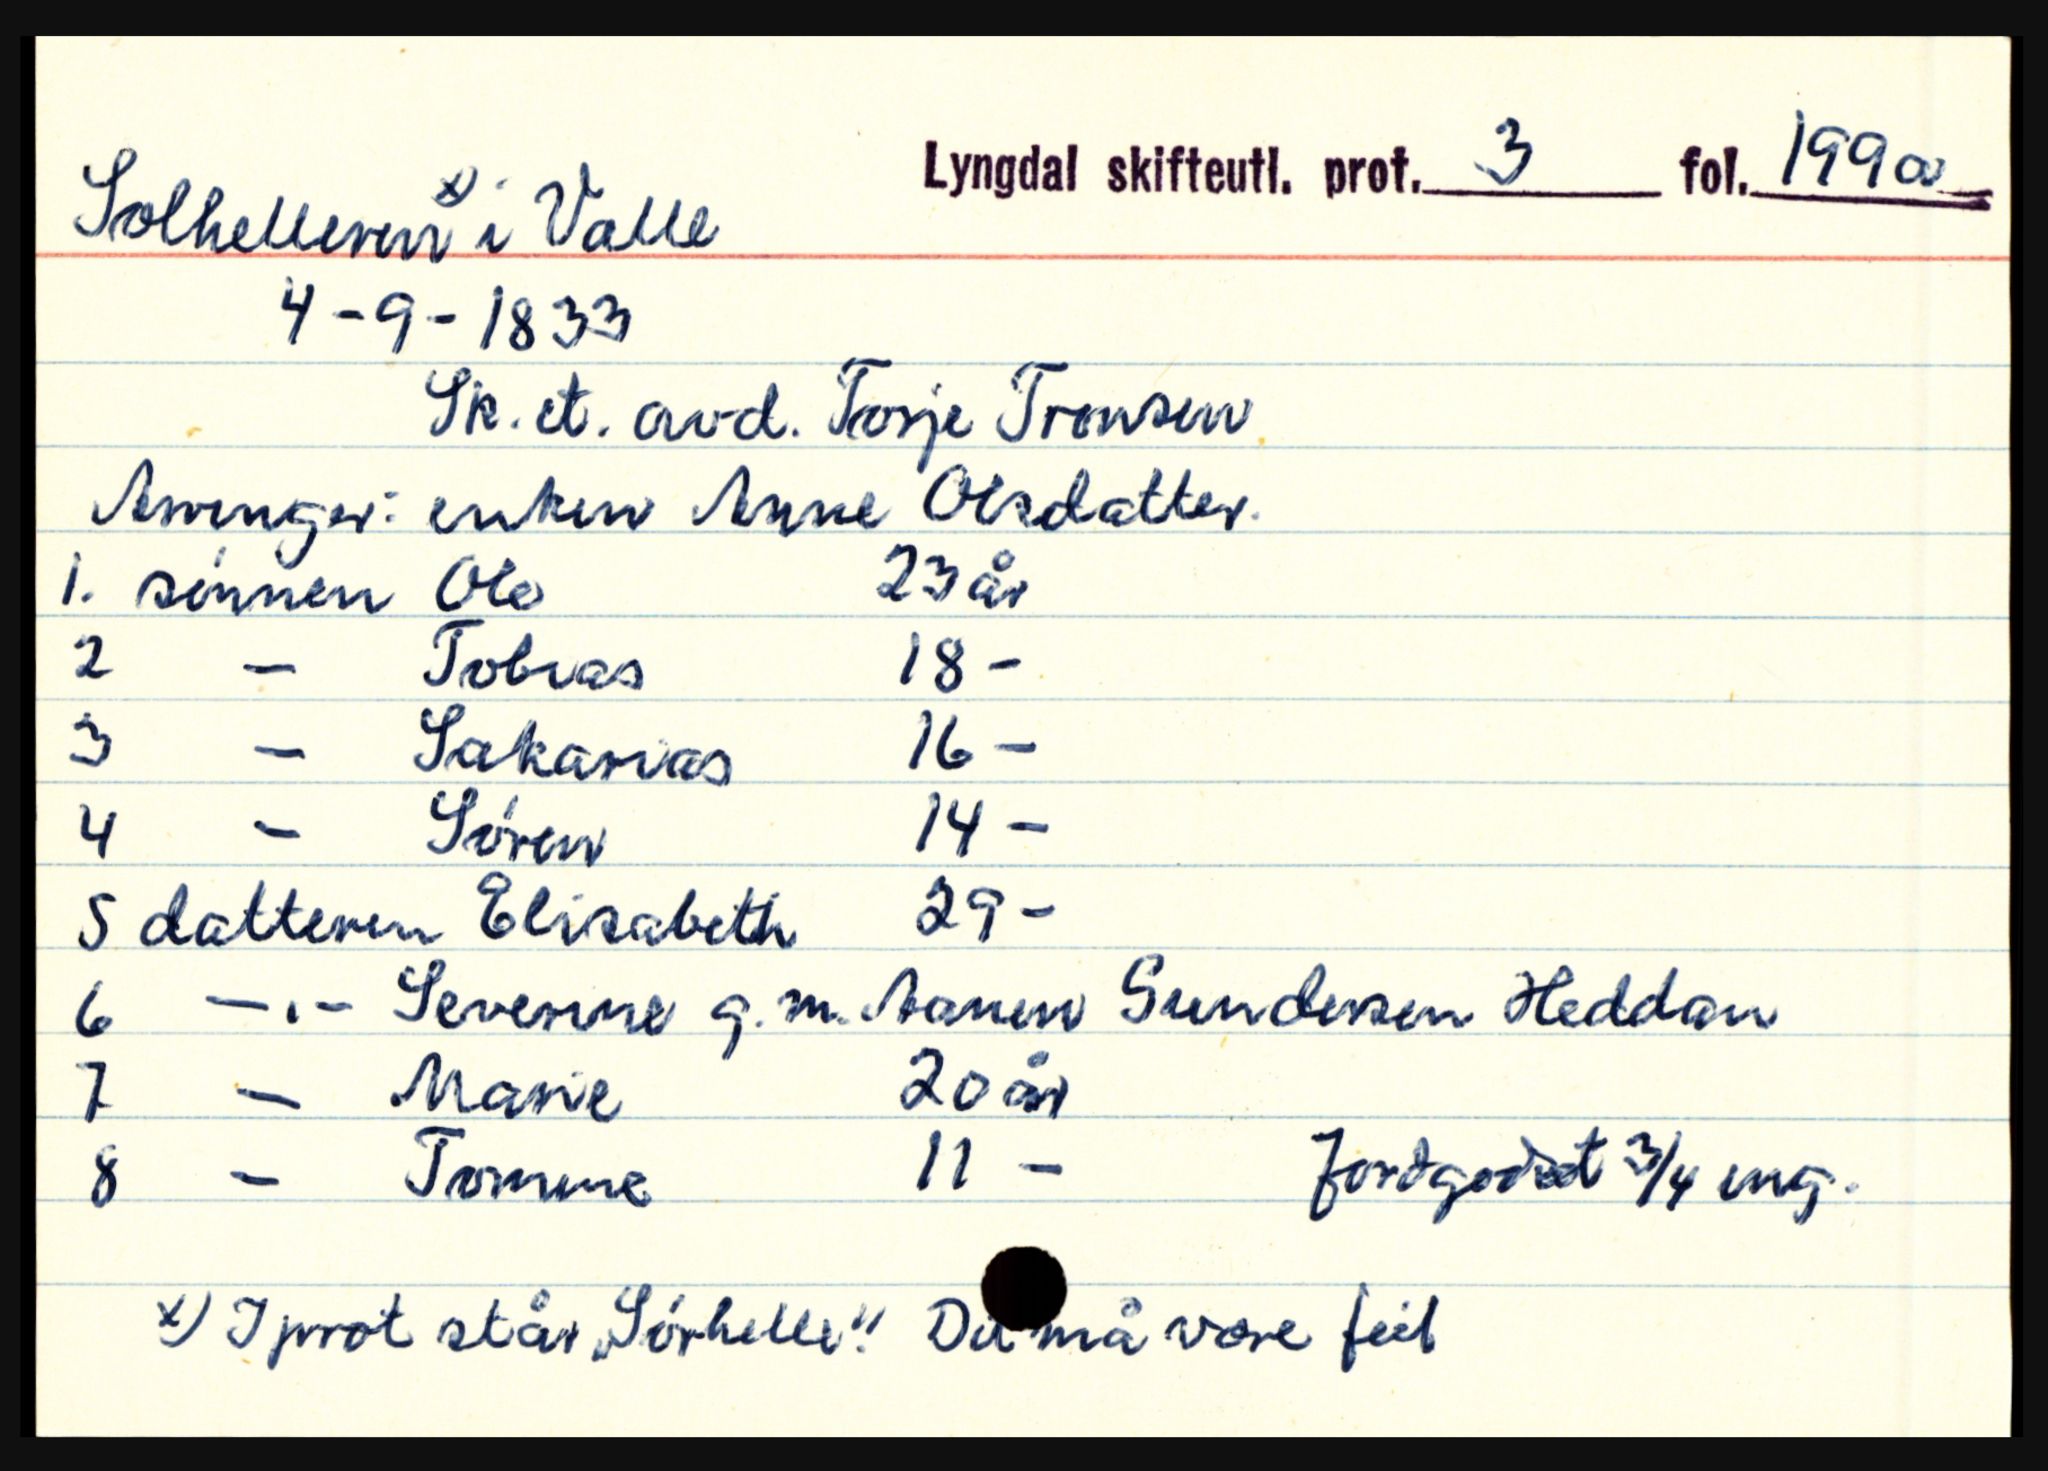 Lyngdal skifteutl. prot. 3 fol. 199a
Solhelleren x) i Valle
4-9-1833
Sk. et. avd. Torje Tronsen
Arvinger: enken Anne Olsdatter.
1. sønnen Ole 23 år
2 - Tobias 18 -
3 - Sakarias 16 -
4 - Søren 14 -
5 datteren Elisabeth 29 -
6 -"- Severine g. m. Aanen Gundersen Heddan
7 - Marie 20 år
8 - Tomine 11 - Jordgodset 3/4 eng.
x) I prot står „Sørhelle". Det må være feil